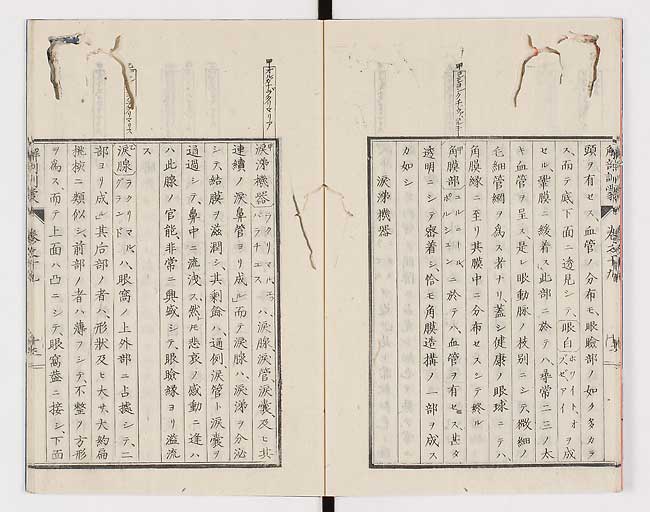 頭ヲ有セス、血管ノ分布モ、眼瞼部ノ如ク多カラ
ス、而テ底下面ニ透見シテ、眼白ホワイト、オヲ成
ズ、ゼ、アイ
セル、鞏膜ニ緩着ス、此部ニ於テハ、尋常二三ノ太
キ血管ヲ呈ス、是レ眼動脈ノ枝別ニシテ、微細ノ
毛細管網ヲ為ス者ナリ、蓋シ健康ノ眼球ニテハ、
角膜縁ニ至リ其膜中ニ分布セスシテ終ル
角膜部コルニール、ニ於テハ、血管ヲ有セス、甚タ
ポルシュン
透明ニシテ密着シ、恰モ角膜造構ノ一部ヲ成ス
カ如シ
涙涕機器
甲オルガナ、ラクリマリア
涙涕機器ラクリマル、
ハ、涙腺、涙管、涙嚢、及ヒ其
連続ノ涙鼻管ヨリ成ル、而テ涙腺ハ、涙涕ヲ分泌
シテ、結膜ヲ滋潤シ、其剰餘ハ、過倒、涙管ト涙嚢ヲ
通過シテ、鼻中ニ流洩ス、然ルニ悲哀ノ感動ニ逢ハ
ハ此腺ノ官能、非常ニ興盛シテ、眼瞼縁ヨリ溢流
ス
涙腺ラクリマル、ハ、眼窩ノ上外部ニ占據シテ、二
グランド
部ヨリ成ル、其后部ノ者ハ、形狀及ヒ大サ、大約扁
桃核ニ類似シ、前部ノ者ハ薄フシテ、不整ノ方形
ヲ為ス、而テ上面ハ凸ニシテ、眼窩蓋ニ接シ、下面